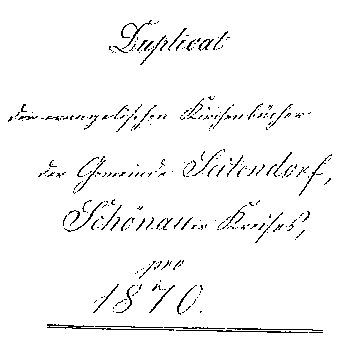 Duplicat
der evangelischen Kirchenbücher
der Gemeinde Seitendorf,
Schönauer Kreises,
pro
1870.